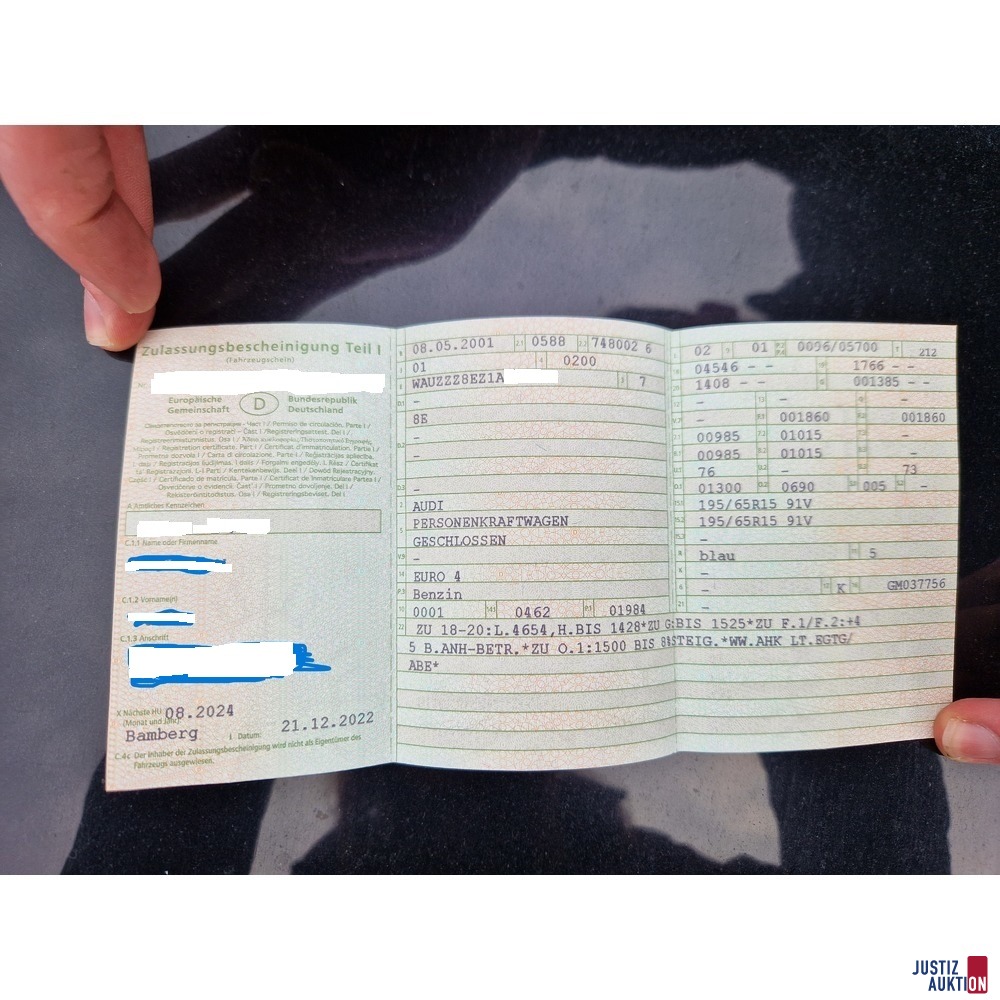 Zulassungsbescheinigung Teil I
(Fahrzeugschein)
Nr.
Europäische
Gemeinschaft
D
Bundesrepublik
Deutschland
A Amtliches Kennzeichen
C.1.1 Name oder Firmenname
C.1.2 Vorname(n)
C.1.3 Anschrift
X Nächste HU 08.2024
(Monat und Jahr)
Bamberg
I Datum: 21.12.2022
C.4c Der Inhaber der Zulassungsbescheinigung wird nicht als Eigentümer des
Fahrzeugs ausgewiesen.
B 08.05.2001 2.1 0588 2.2 748002 6
01 4 0200
E WAUZZZ8EZ1A 3 7
D.1 -
8E
D.2 -
-
D.3 -
2 AUDI
5 PERSONENKRAFTWAGEN
GESCHLOSSEN
V.9 -
14 EURO 4
P.3 Benzin
10 0001 14.1 0462 P.1 01984
22 ZU 18-20:L.4654,H.BIS 1428*ZU G:BIS 1525*ZU F.1/F.2:+4
5 B.ANH-BETR.*ZU O.1:1500 BIS 8%STEIG.*WW.AHK LT.EGTG/
ABE*
02 9 01 P.2 P.4 0096/05700 T 212
04546 - - 1766 - -
1408 - - 001385 - -
- 13 - -
- F.1 001860 F.2 001860
00985 01015 -
00985 01015 -
76 - 73
01300 0690 005 -
195/65R15 91V
195/65R15 91V
-
R blau 11 5
-
- K GM037756
21 -
JUSTIZ
AUKTION